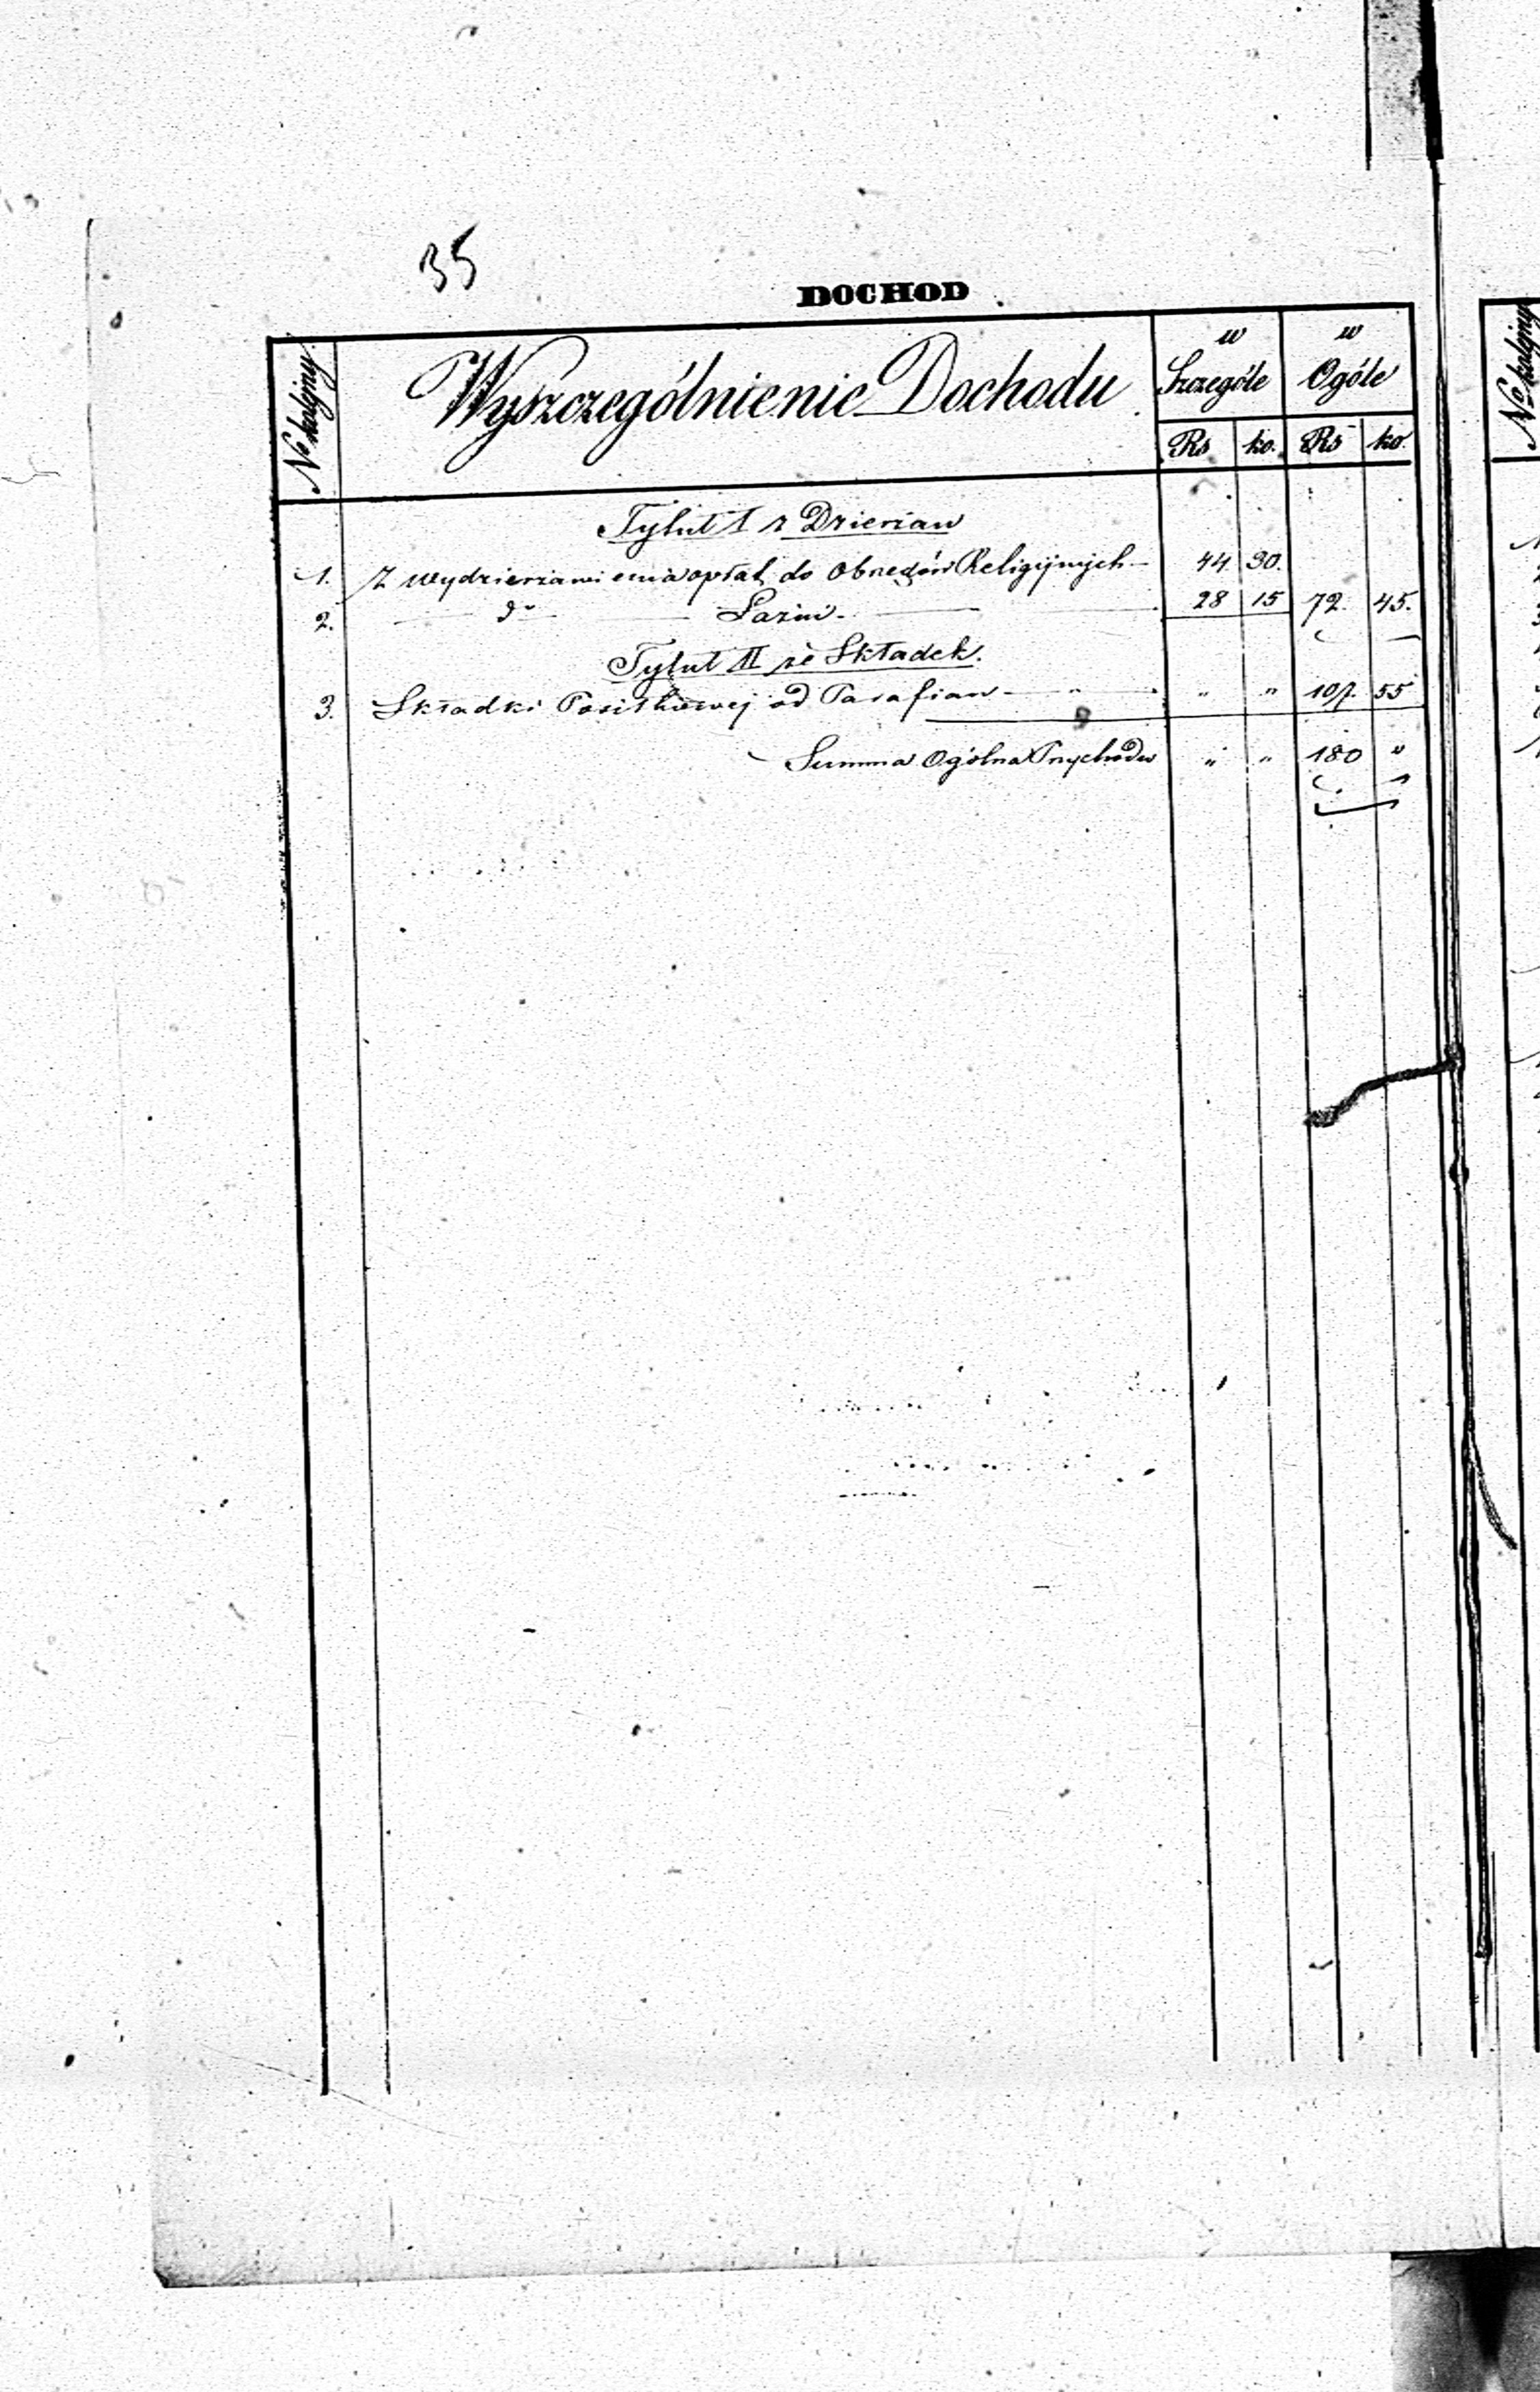 35
DOCHOD
No kolejny
Wyszczególnienie Dochodu
w Szczególe
w Ogóle
Rs ko. Rs ko.
Tytuł I z Dzierżaw
1. Z wydzierżawienia opłat do Obrzędów Religijnych 44 30.
2. do Łaźni 28 15 72. 45.
Tytuł II ze Składek.
3. Składki Posiłkowej od Parafian " " 107. 55
Summa Ogólna Przychodu " " 180 "
No kolejny